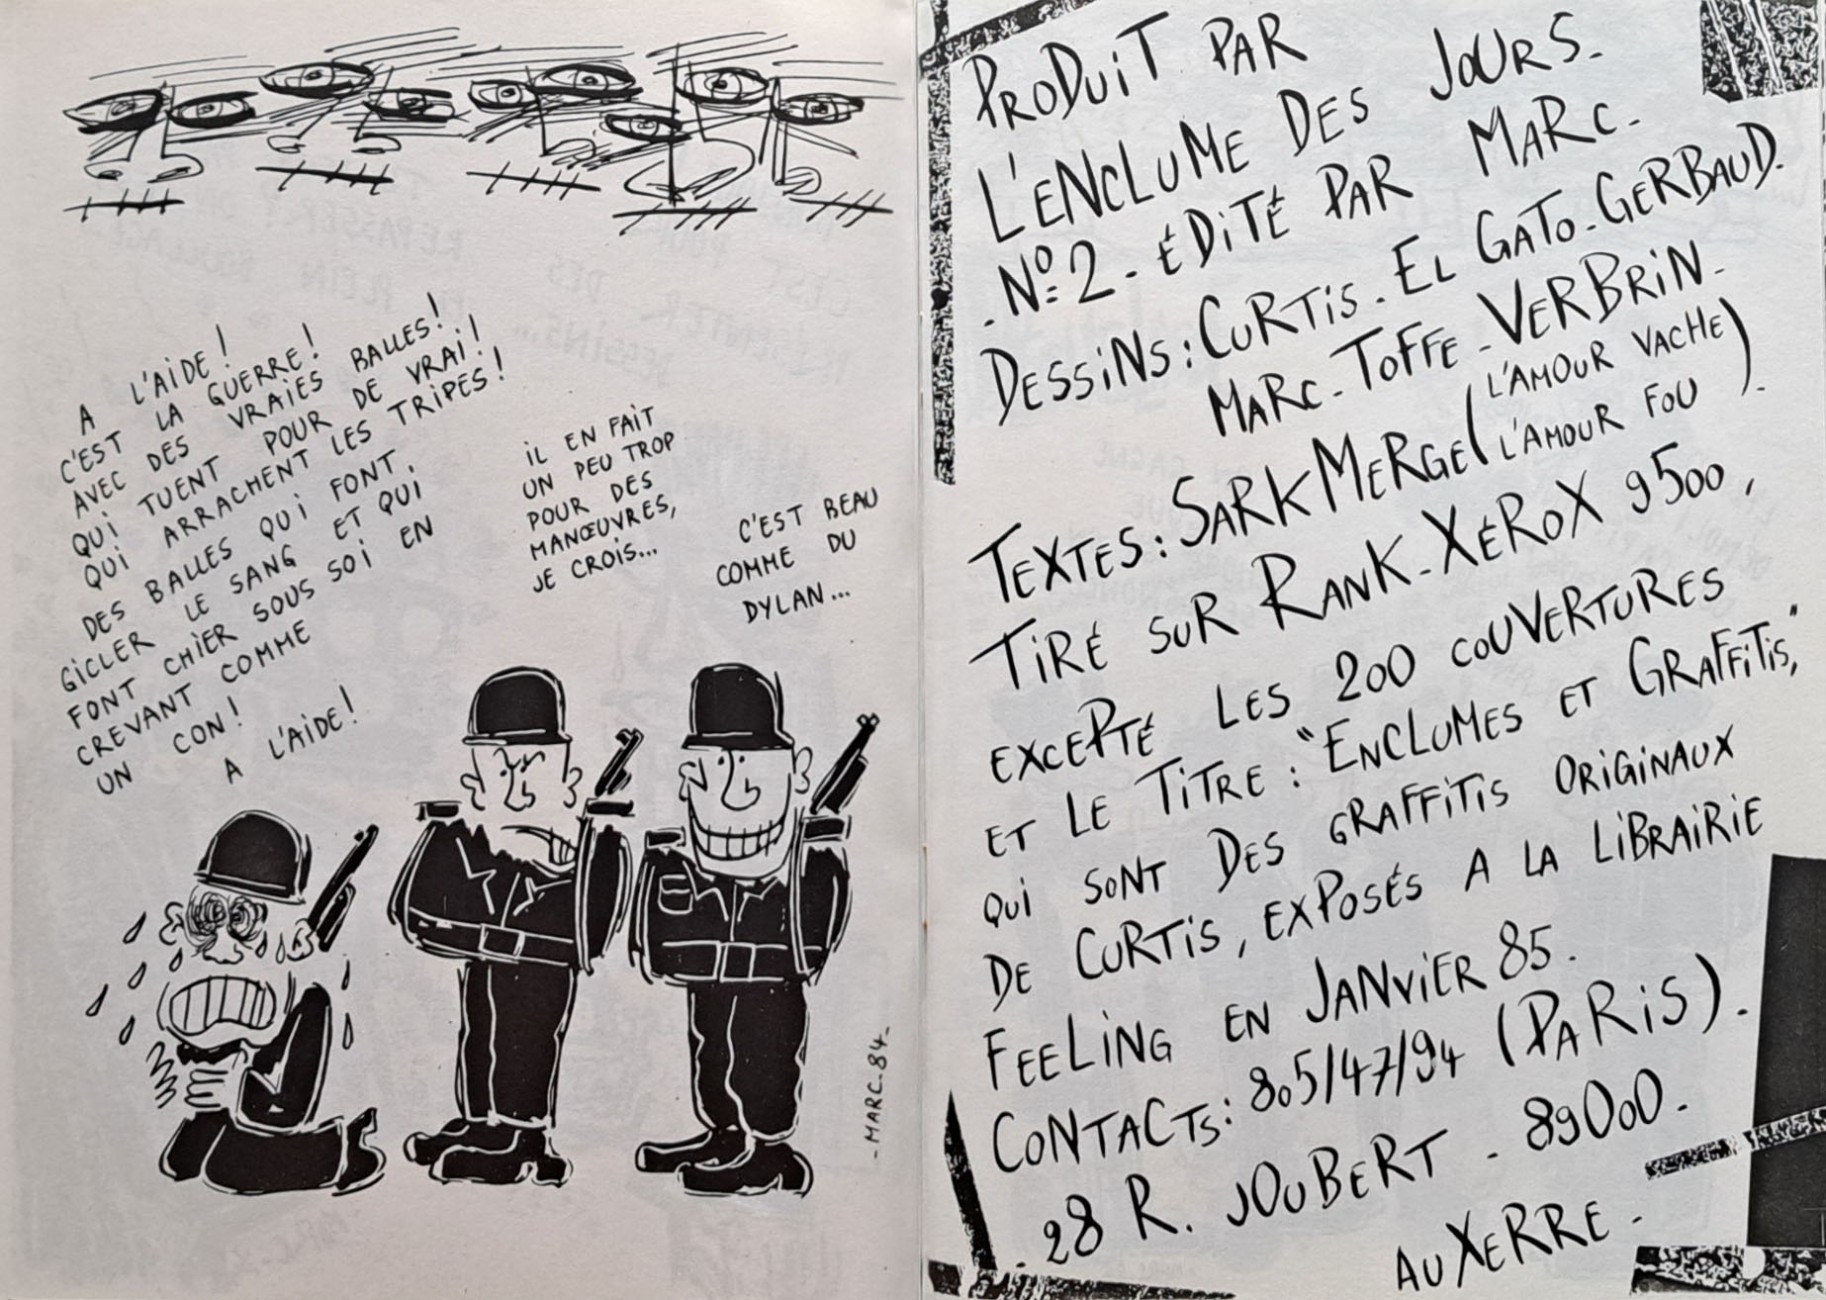 A L'AIDE !
C'EST LA GUERRE !
AVEC DES VRAIES BALLES !
QUI TUENT POUR DE VRAI !
QUI ARRACHENT LES TRIPES !
DES BALLES QUI FONT
GICLER LE SANG ET QUI
FONT CHIER SOUS SOI EN
CREVANT COMME
UN CON !
A L'AIDE !
IL EN FAIT
UN PEU TROP
POUR DES
MANŒUVRES,
JE CROIS...
C'EST BEAU
COMME DU
DYLAN...
- MARC. 84 -
PRODUIT PAR
L'ENCLUME DES JOURS.
. Nº 2 - ÉDITÉ PAR MARC.
DESSINS : CURTIS - EL GATO - GERBAUD.
MARC - TOFFE - VERBRIN -
TEXTES : SARKMERGE (L'AMOUR VACHE
L'AMOUR FOU).
TIRÉ SUR RANK-XÉROX 9500,
EXCEPTÉ LES 200 COUVERTURES
ET LE TITRE : "ENCLUMES ET GRAFFITIS,"
QUI SONT DES GRAFFITIS ORIGINAUX
DE CURTIS, EXPOSÉS A LA LIBRAIRIE
FEELING EN JANVIER 85.
CONTACTS : 805/47/94 (PARIS).
. 28 R. JOUBERT - 89000 -
AUXERRE -